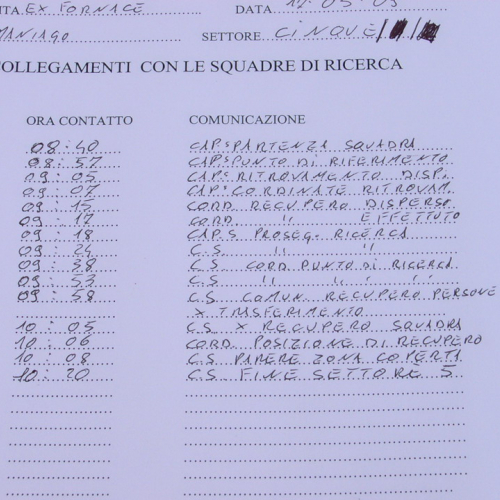 ITA EX FORNACE DATA
MANIAGO SETTORE CINQUE
COLLEGAMENTI CON LE SQUADRE DI RICERCA
ORA CONTATTO COMUNICAZIONE
08:40 CAP.S PARTENZA SQUADRA
08:57 CAP.S PUNTO DI RIFERIMENTO
09:05 CAP.S RITROVAMENTO DISP.
09:07 CAP.S COORDINATE RITROVAM.
09:15 COORD RECUPERO DISPERSO
09:17 COORD. " EFFETTUTO
09:18 CAP.S PROSEG. RICERCA
09:24 C.S. " "
09:38 C.S. COORD PUNTO DI RICERCA
09:53 C.S. " " " "
09:58 C.S. COMUN. RECUPERO PERSONE
X TRASFERIMENTO
10:05 C.S. X RECUPERO SQUADRA
10:06 COORD. POSIZIONE DI RECUPERO
10:08 C.S. PARERE ZONA COPERTA
10:20 C.S. FINE SETTORE 5